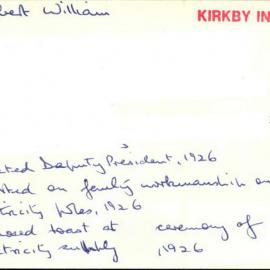 bert William
KIRKBY IN
cted Deputy President, 1926
on faulty workmanship on
tricity Poles, 1926
osed toast at ceremony of
ctricity supply, 1926